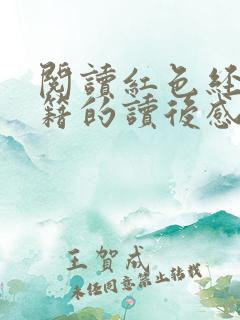 閱讀紅色經
籍的讀後感
王賀成
未經同意禁止轉載